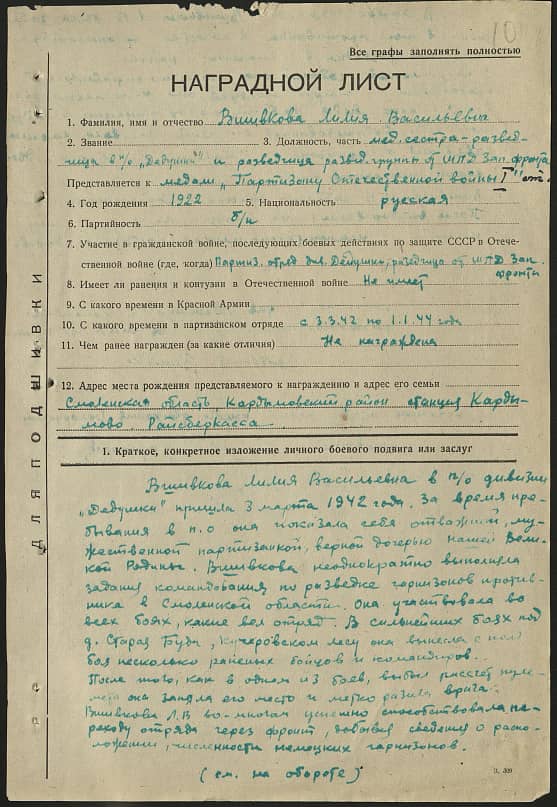 10
Все графы заполнять полностью
НАГРАДНОЙ ЛИСТ
1. Фамилия, имя и отчество Вшивкова Лилия Васильевна
2. Звание 3. Должность, часть мед. сестра-развед-
чица в п/о „Дедушка" и разведчица развед. группы от ШПД Зап. фронта
Представляется к медали „Партизану Отечественной войны I" ст.
4. Год рождения 1922 5. Национальность русская
6. Партийность б/п
7. Участие в гражданской войне, последующих боевых действиях по защите СССР в Отече-
ственной войне (где, когда) Партиз. отряд див. Дедушки, разведчица от ШПД Зап.
фронта
8. Имеет ли ранения и контузии в Отечественной войне Не имеет
9. С какого времени в Красной Армии
10. С какого времени в партизанском отряде с 3.3.42 по 1.1.44 года
11. Чем ранее награжден (за какие отличия) Не награждена
12. Адрес места рождения представляемого к награждению и адрес его семьи
Смоленская область, Кардымовский район станция Карды-
мово Райсберкасса
1. Краткое, конкретное изложение личного боевого подвига или заслуг
Вшивкова Лилия Васильевна в п/о дивизии
„Дедушки" пришла 3 марта 1942 года. За время пре-
бывания в п.о она показала себя отважной, му-
жественной партизанкой, верной дочерью нашей Вели-
кой Родины. Вшивкова неоднократно выполняла
задания командования по разведке гарнизонов против-
ника в Смоленской области. Она участвовала во
всех боях, какие вел отряд. В сильнейших боях под
д. Старая Буда, Кучеровском лесу она вынесла с поля
боя несколько раненых бойцов и командиров.
После того, как в одном из боев, выбыл расчет пуле-
мета она заняла его место и метко разила врага.
Вшивкова Л.В во-многом успешно способствовала пе-
реходу отряда через фронт, добывая сведения о распо-
ложении, численности немецких гарнизонов.
(см. на обороте)
З. 309
ДЛЯ ПОДШИВКИ